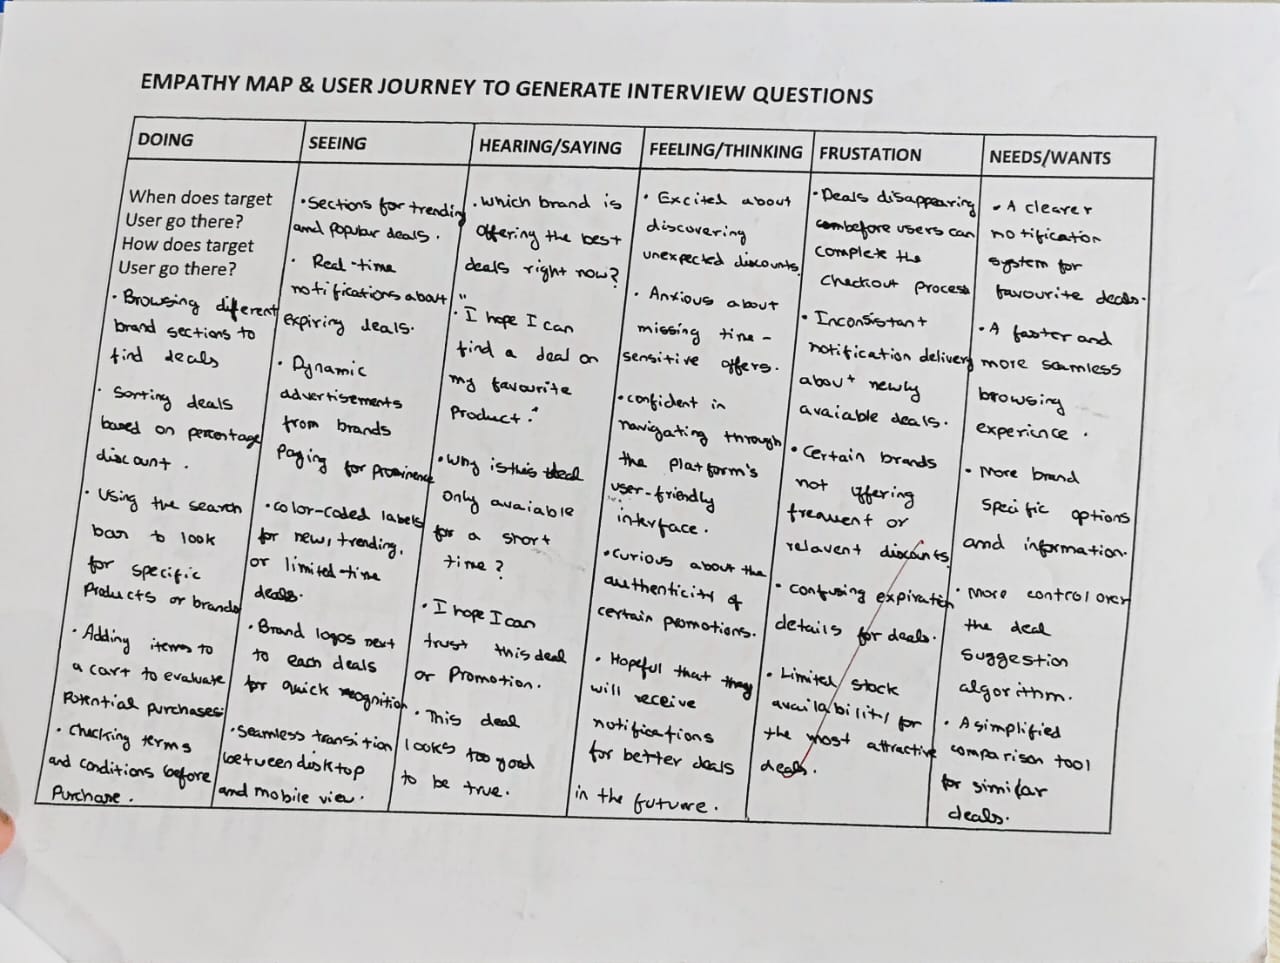 EMPATHY MAP & USER JOURNEY TO GENERATE INTERVIEW QUESTIONS
DOING
When does target
User go there?
How does target
User go there?
• Browsing diferent
brand sections to
find deals
• Sorting deals
based on percentage
discount.
• Using the search
bar to look
for specific
Products or brands
• Adding items to
a cart to evaluate
Potential purchases
• Checking terms
and conditions before
Purchase.
SEEING
• Sections for trending
and popular deals.
• Real-time
notifications about
expiring deals.
• Dynamic
advertisements
from brands
Paging for prominence
• color-coded labels
for new, trending,
or limited-time
deals.
• Brand logos next
to each deals
for quick recognition
• Seamless transition
between disktop
and mobile view.
HEARING/SAYING
• which brand is
offering the best
deals right now?
"
• I hope I can
find a deal on
my favourite
Product."
• why is this deal
only avaiable
for a short
time?
• I hope I can
trust this deal
or Promotion.
• This deal
looks too good
to be true.
FEELING/THINKING
• Excited about
discovering
unexpected discounts
• Anxious about
missing time-
sensitive offers.
• confident in
navigating through
the platform's
user-friendly
interface.
• curious about the
authenticity of
certain promotions.
• Hopeful that they
will receive
notifications
for better deals
in the future.
FRUSTATION
• Deals disappearing
before users can
complete the
checkout process
• Inconsistant
notification delivery
about newly
avaiable deals.
• Certain brands
not offering
frequent or
relavent discounts
• confusing expiration
details for deals.
• Limited stock
availability for
the most attractive
deals.
NEEDS/WANTS
• A clearer
notification
system for
favourite deals.
• A faster and
more seamless
browsing
experience.
• More brand
specific options
and information.
• More control over
the deal
suggestion
algorithm.
• A simplified
comparison tool
for similar
deals.